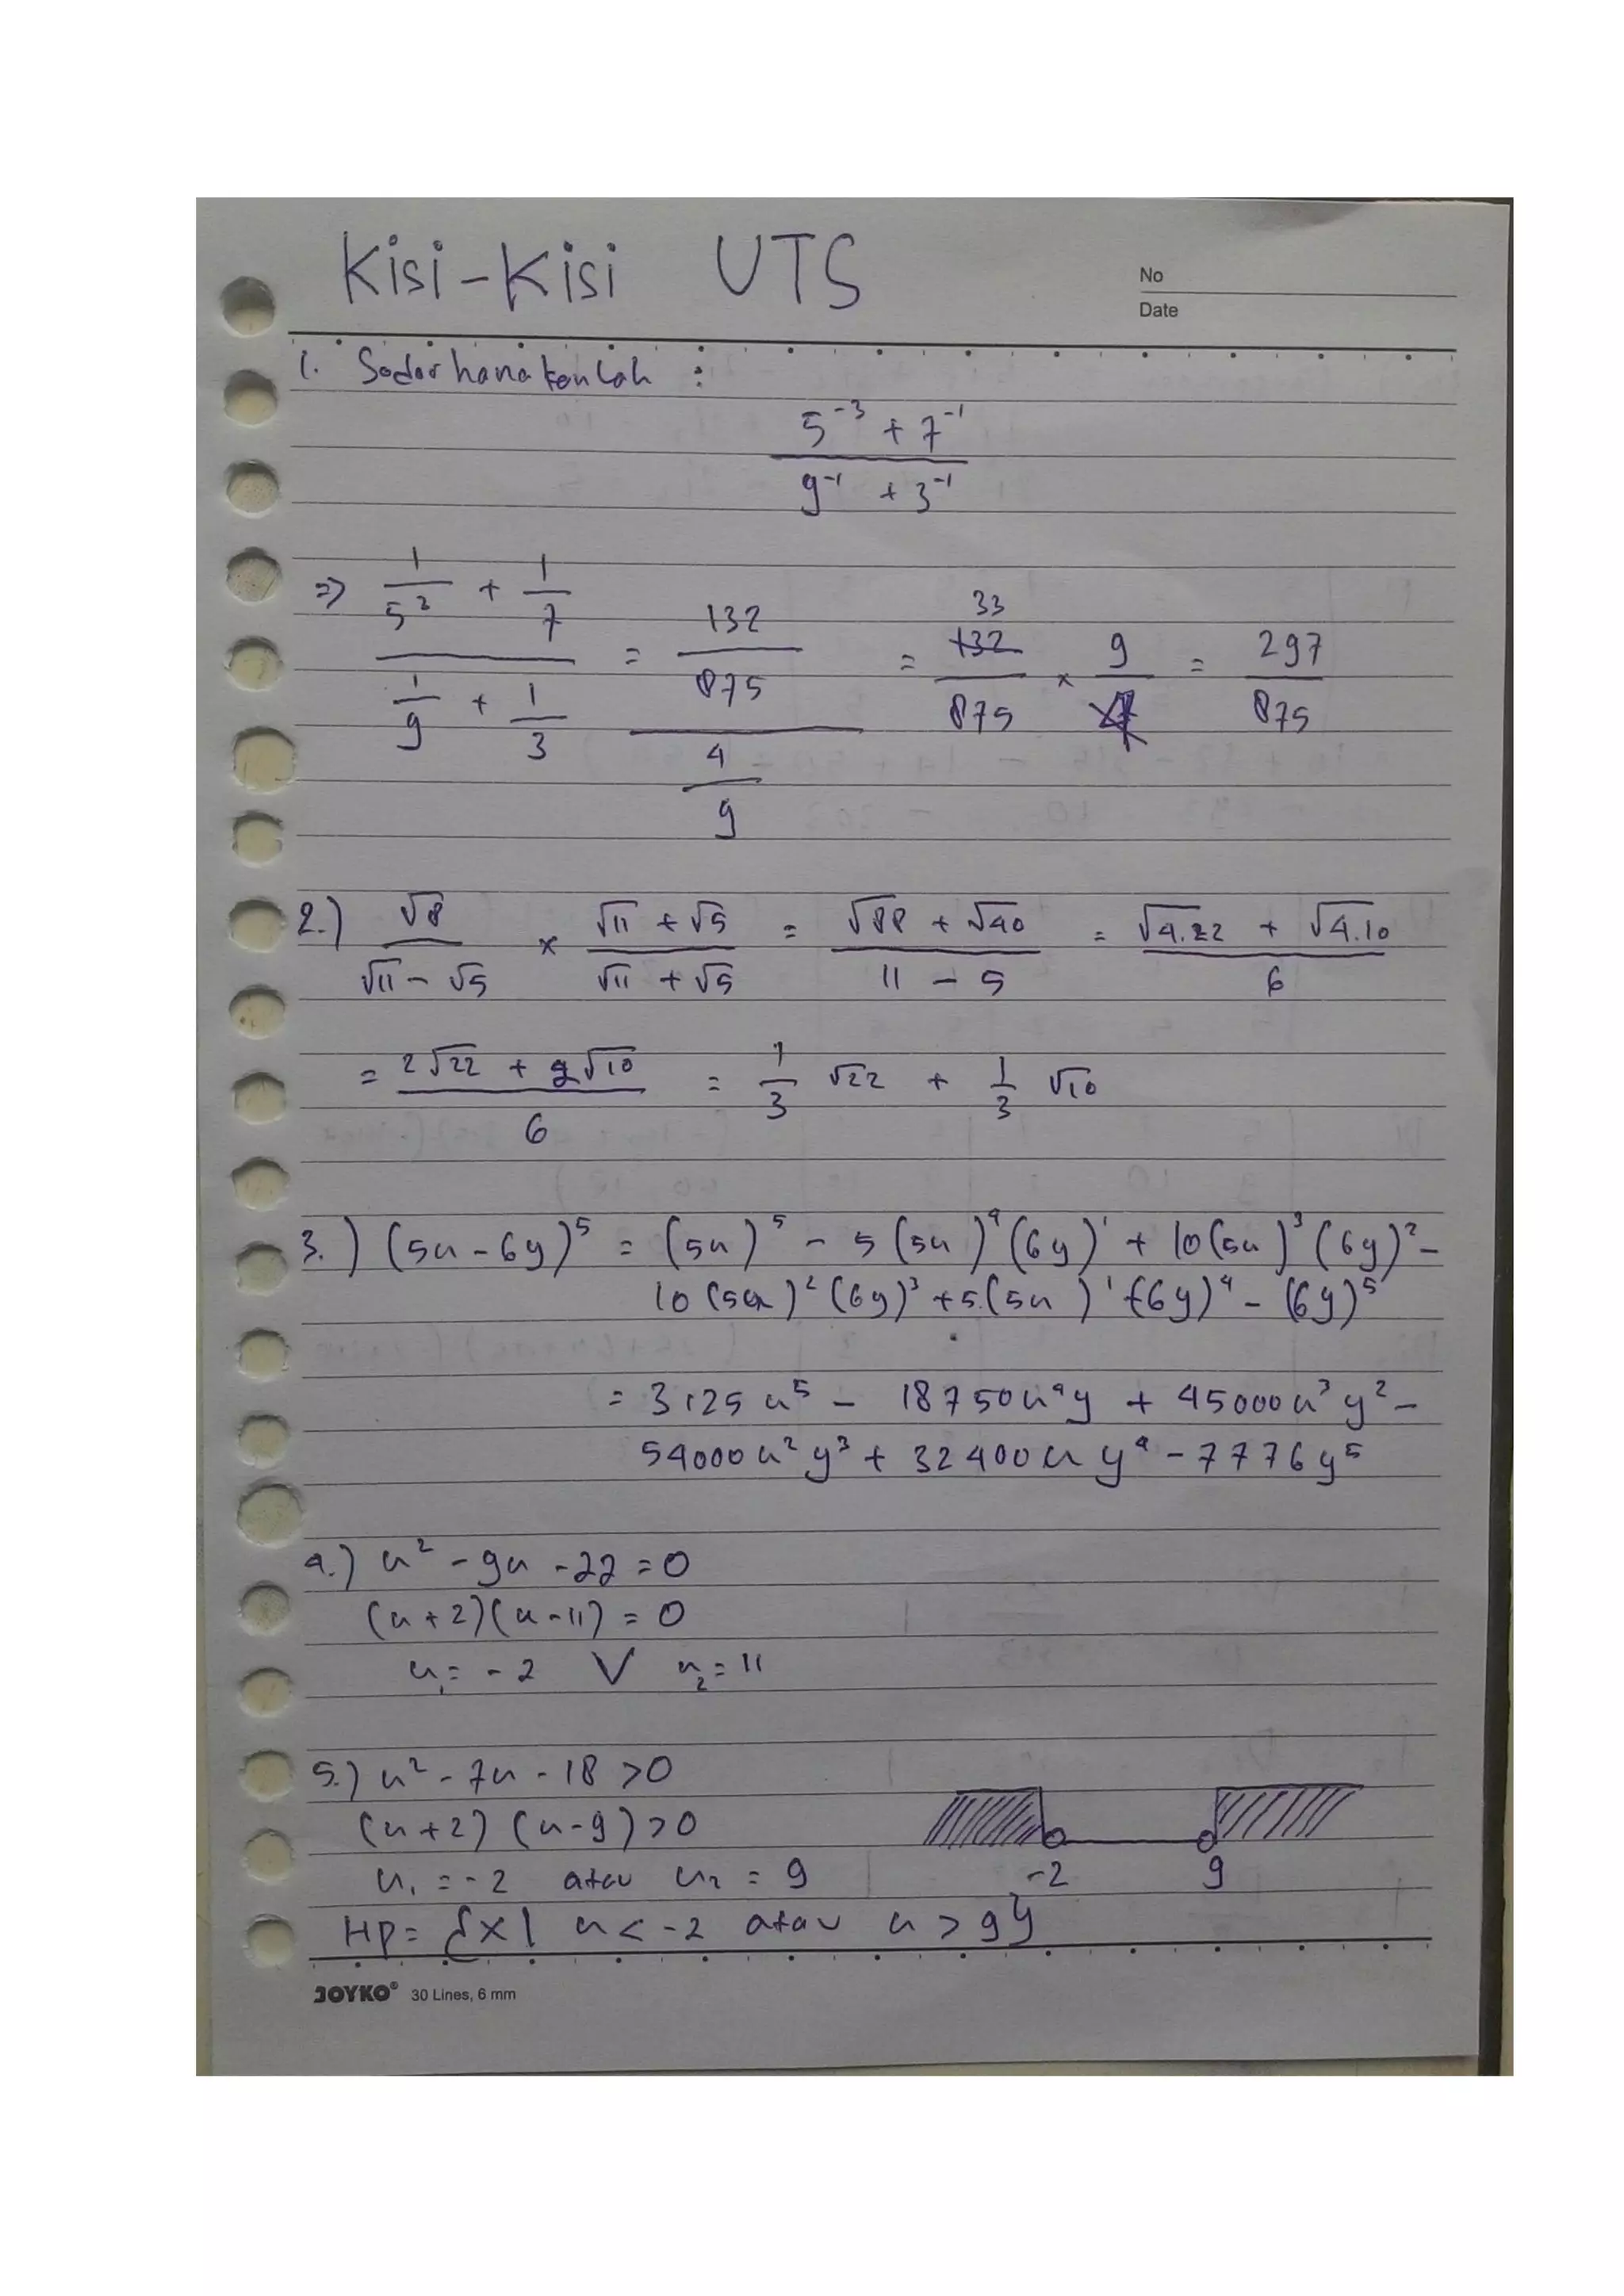 Kisi-Kisi UTS
No
Date
1. Sederhanakanlah :
5⁻³ + 7⁻¹
9⁻¹ + 3⁻¹
=> 1/5³ + 1/7 / 1/9 + 1/3 = 132/875 / 4/9 = 33 132/875 x 9/4 = 297/875
2.) √8/√11 - √5 x √11 + √5/√11 + √5 = √88 + √40/11 - 5 = √4.22 + √4.10/6
= 2√22 + 2√10/6 = 1/3 √22 + 1/3 √10
3.) (5x - 6y)⁵ = (5x)⁵ - 5(5x)⁴(6y)¹ + 10(5x)³(6y)² -
10(5x)²(6y)³ + 5.(5x)¹(6y)⁴ - (6y)⁵
= 3125x⁵ - 18750x⁴y + 45000x³y² -
54000x²y³ + 32400xy⁴ - 7776y⁵
4.) x² - 9x - 22 = 0
(x + 2)(x - 11) = 0
x₁ = -2 V x₂ = 11
5.) x² - 7x - 18 > 0
(x + 2) (x - 9) > 0
x₁ = -2 atau x₂ = 9
-2 9
HP = {x | x < -2 atau x > 9}
JOYKO® 30 Lines, 6 mm